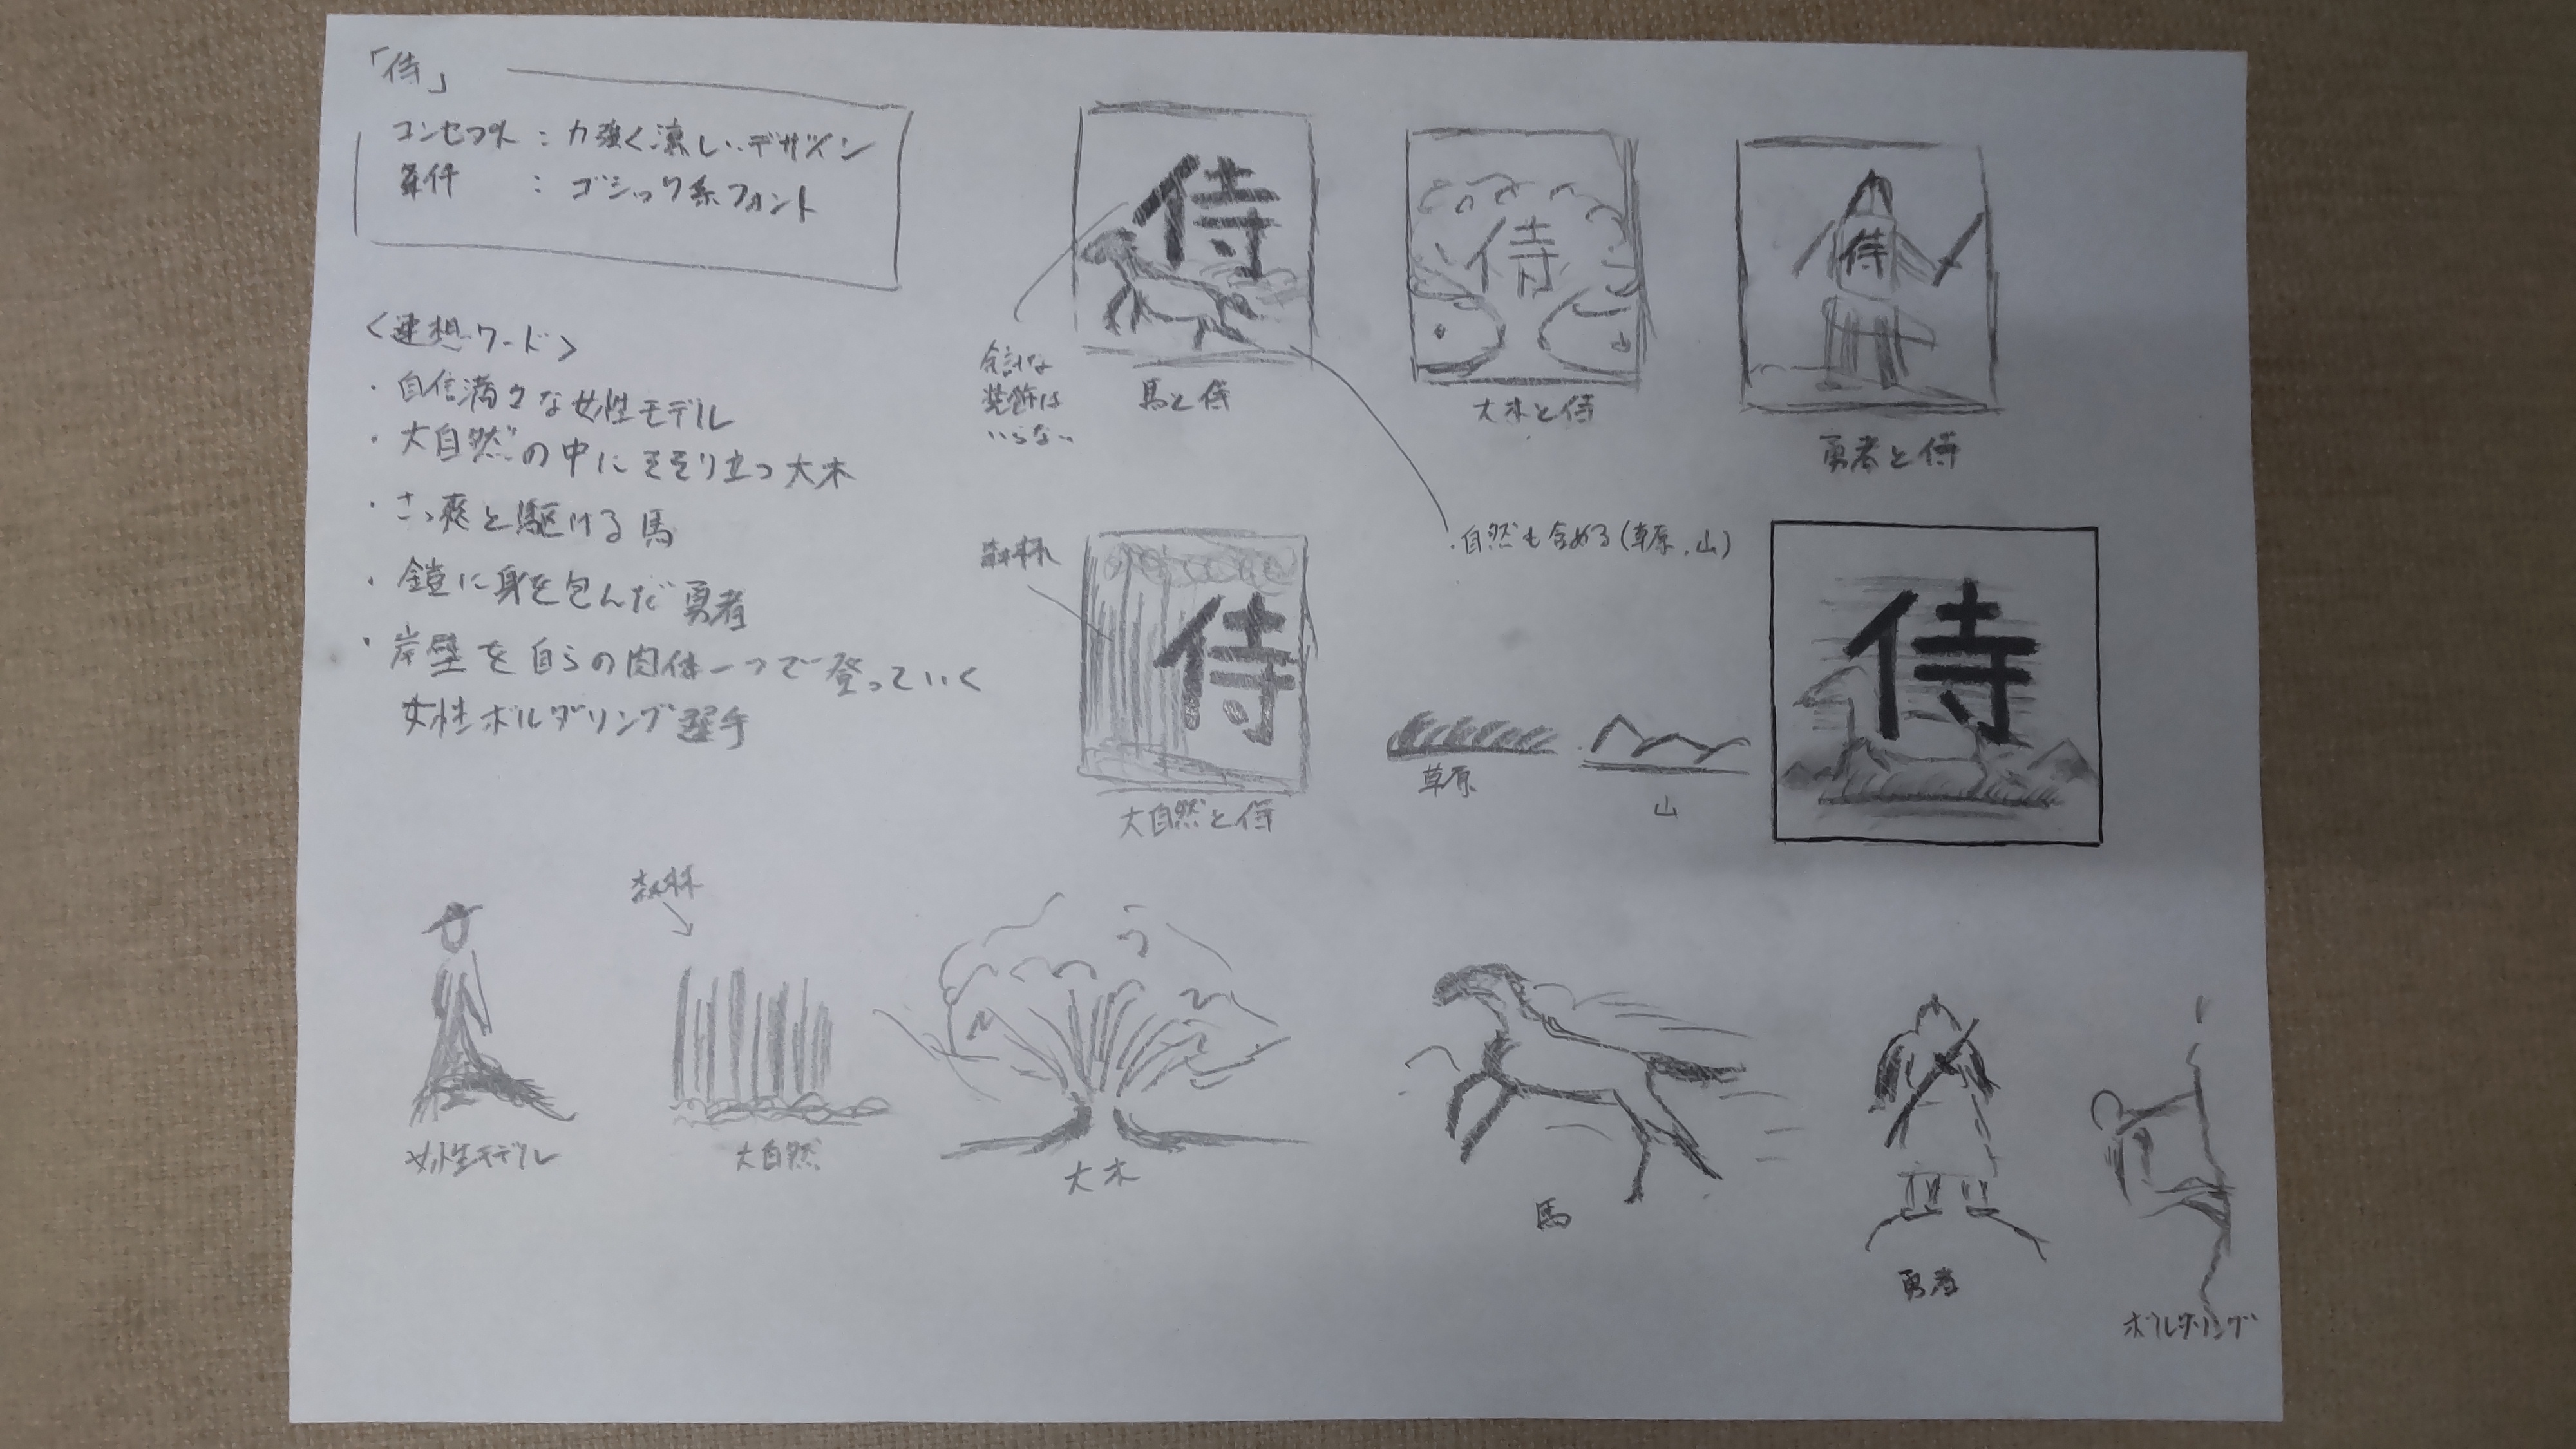 「侍」
コンセプト : 力強く涼しいデザイン
条件 : ゴシック系フォント
<連想ワード>
・自信満々な女性モデル
・大自然の中にそそり立つ大木
・さっ爽と駆ける馬
・鎧に身を包んだ勇者
・岸壁を自らの肉体一つで登っていく
女性ボルダリング選手
侍
余計な
装飾は
いらない
馬と侍
侍
大木と侍
侍
勇者と侍
森林
侍
大自然と侍
・自然も含める(草原、山)
草原
山
侍
女性モデル
森林
大自然
大木
馬
勇者
ボルダリング